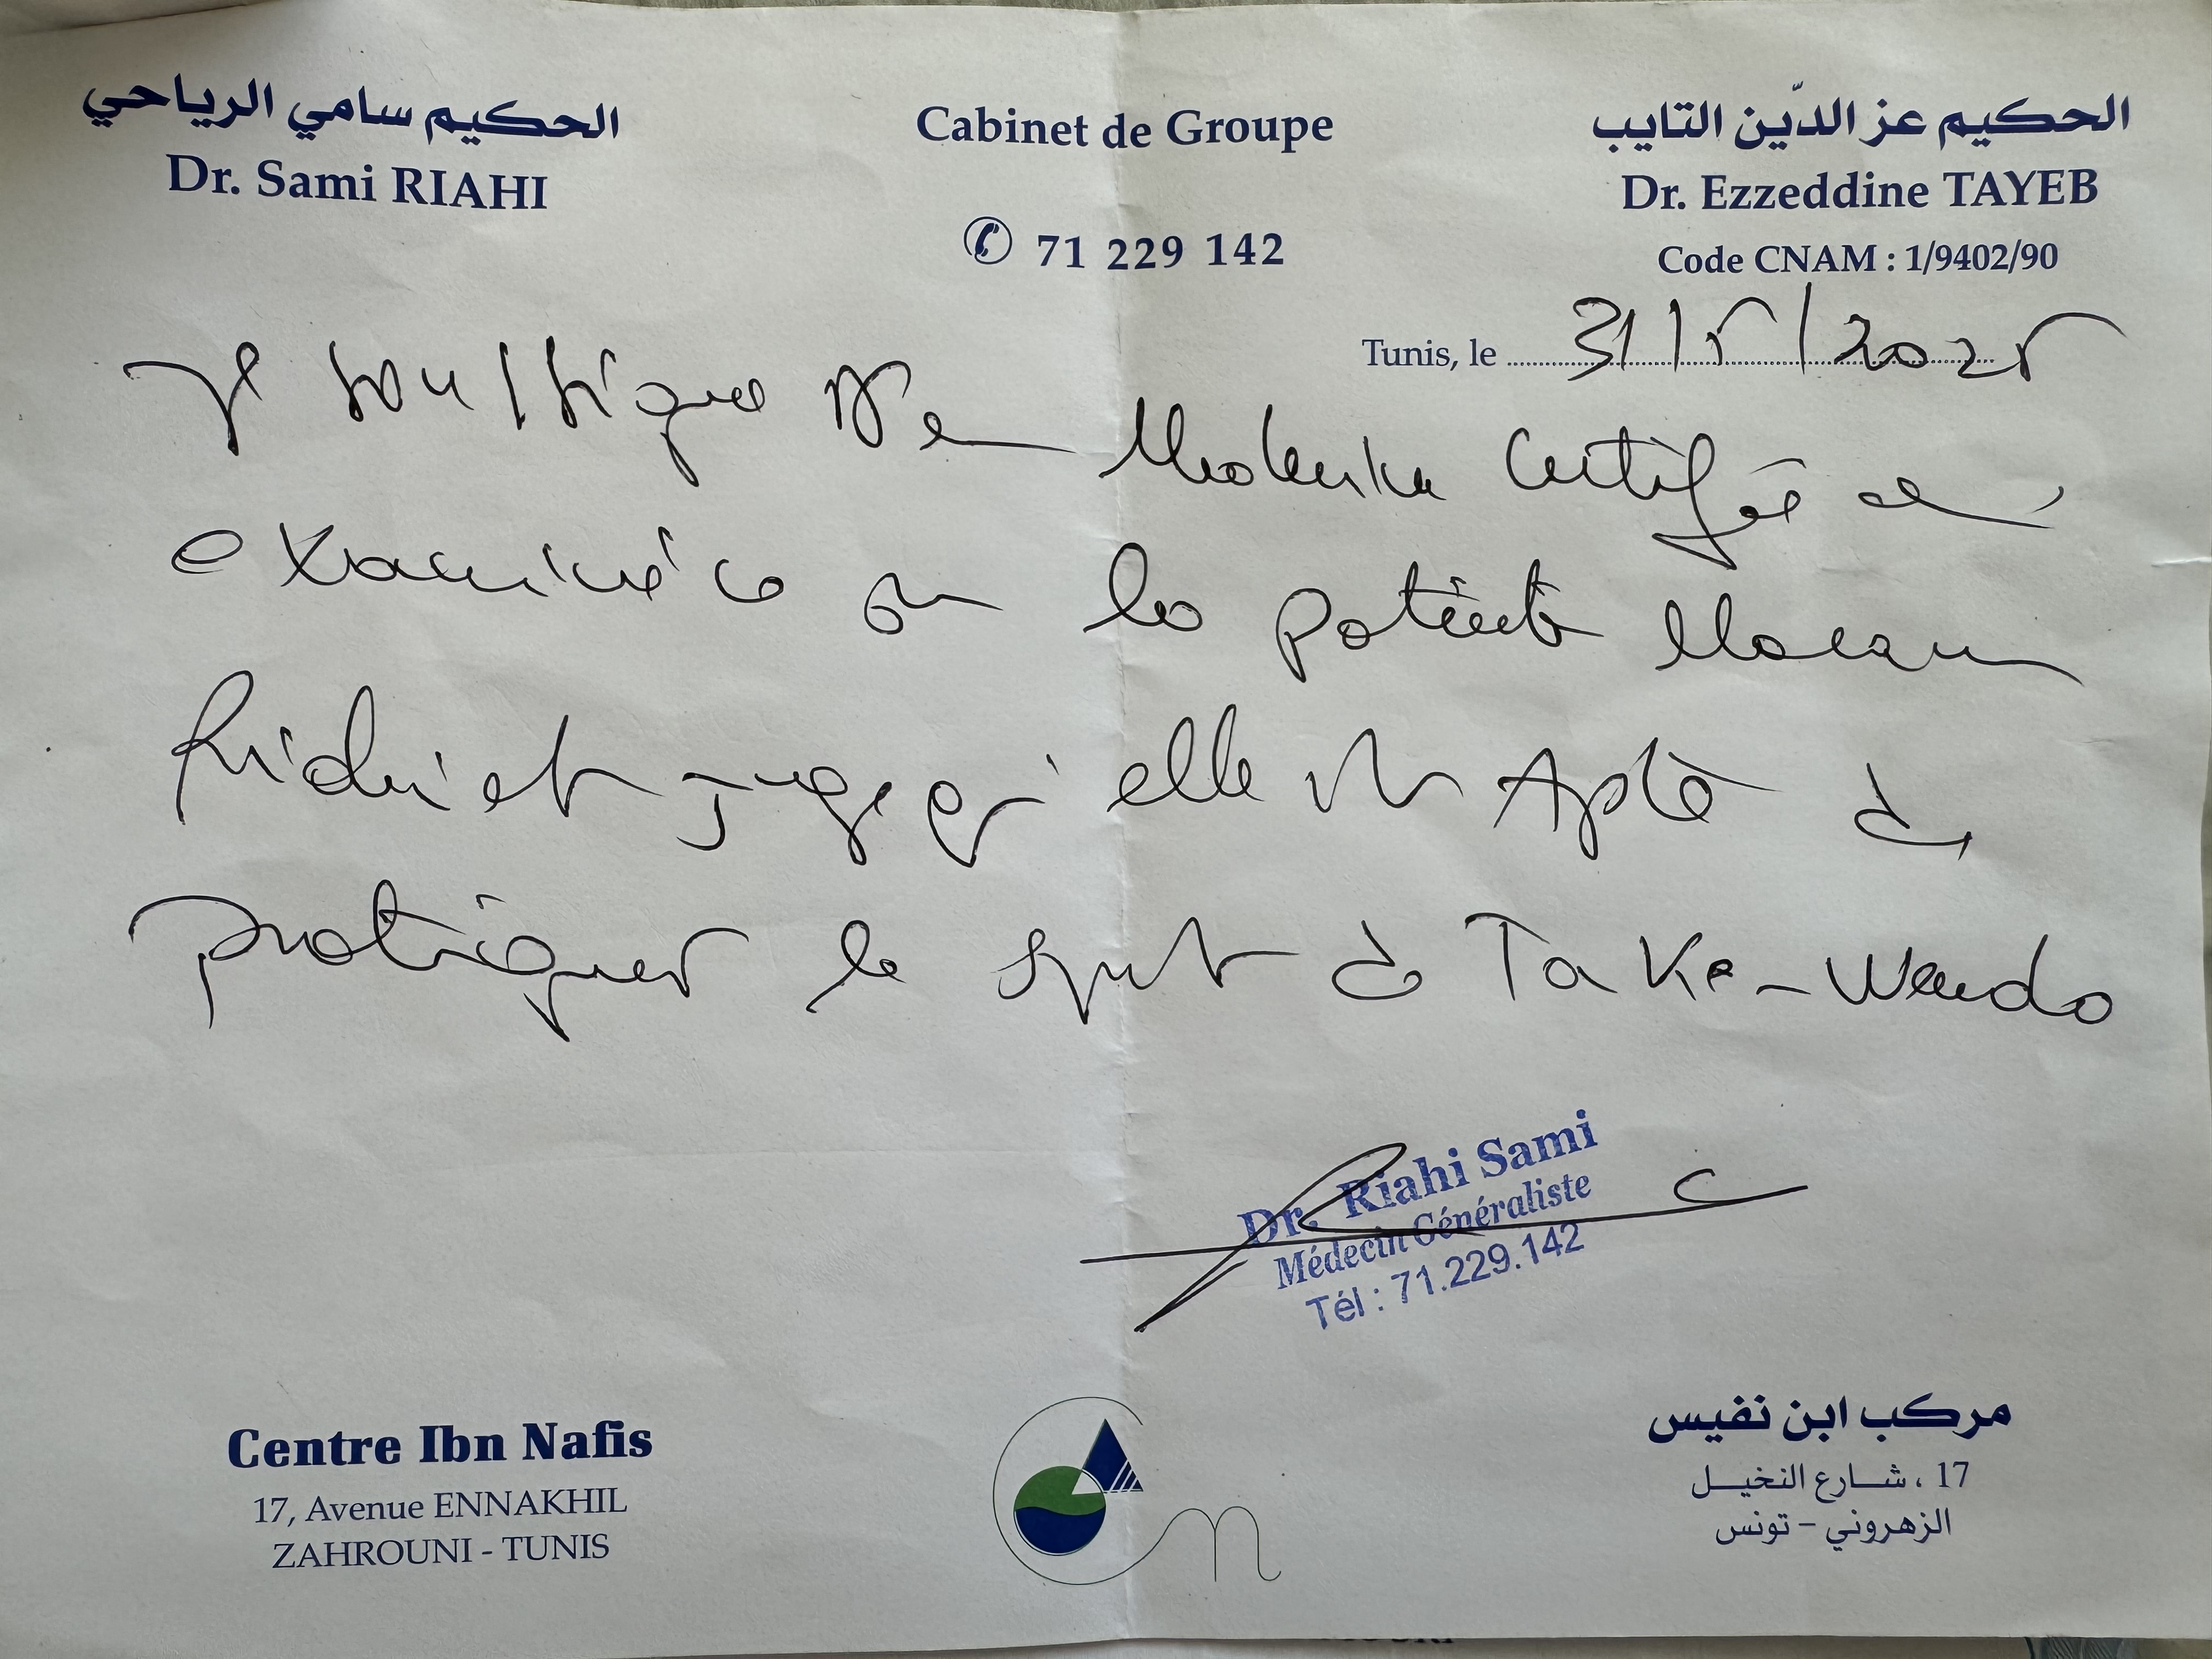 الحكيم سامي الرياحي
Dr. Sami RIAHI
Cabinet de Groupe
71 229 142
الحكيم عز الدّين التايب
Dr. Ezzeddine TAYEB
Code CNAM : 1/9402/90
Tunis, le 31/5/2025
Je soussigné Certifie
examiné ce la patiente
et juge qu'elle est Apte à
pratiquer le sport de Take-Wendo
Dr. Riahi Sami
Médecin Généraliste
Tél : 71.229.142
Centre Ibn Nafis
17, Avenue ENNAKHIL
ZAHROUNI - TUNIS
مركب ابن نفيس
17 ، شارع النخيل
الزهروني - تونس